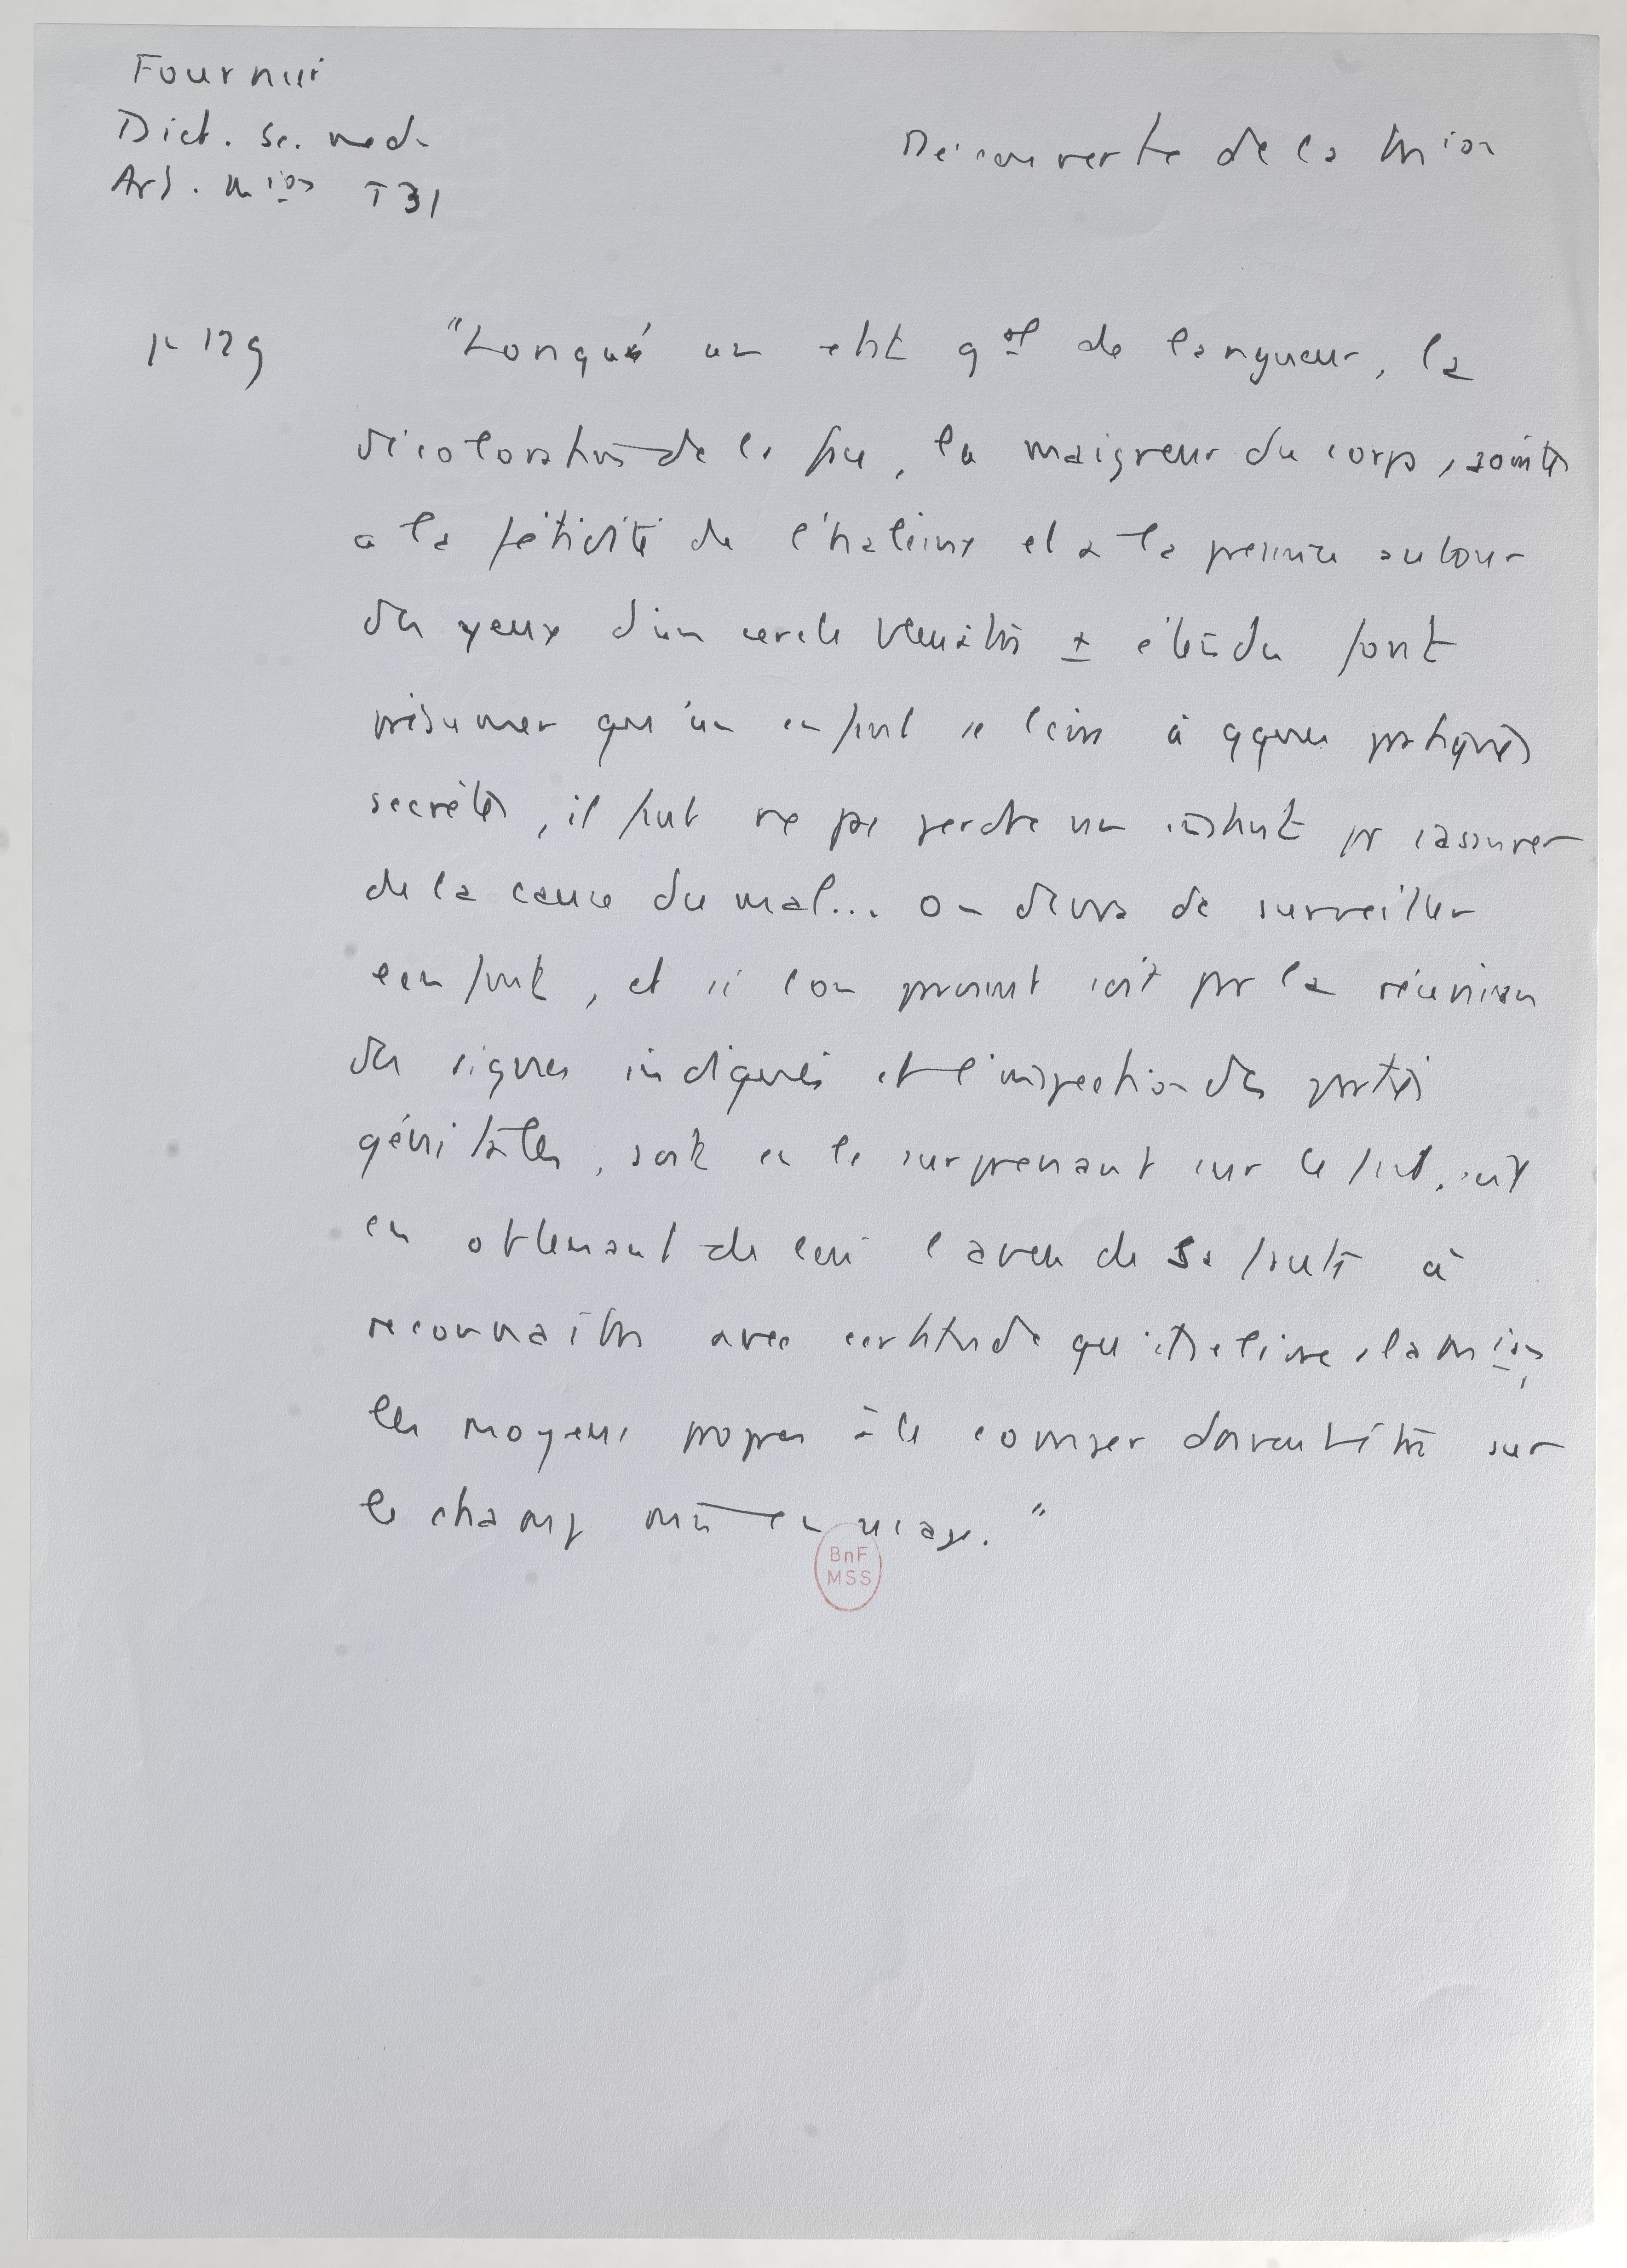 Fournier
Dict. Sc. med.
Art. mion T 31
Découverte de la mion
p 129
"Lorsque un etat gal de langueur, la
décoloration de la face, la maigreur du corps, jointes
a la fétidité de l'haleine et a la présence autour
des yeux d'un cercle bleuâtre ± étendu font
présumer qu'un enfant se livre à qques pratiques
secrètes, il faut ne pas perdre un instant pr s'assurer
de la cause du mal... On devra de surveiller
l'enfant, et si l'on parvient soit par la réunion
des signes indiqués et l'inspection des parties
génitales, soit en le surprenant sur le fait, soit
en obtenant de lui l'aveu de sa faute à
reconnaître avec certitude qu'il se livre à la mion,
les moyens propres à le corriger doivent être sur
le champ mis en usage."
BnF
MSS